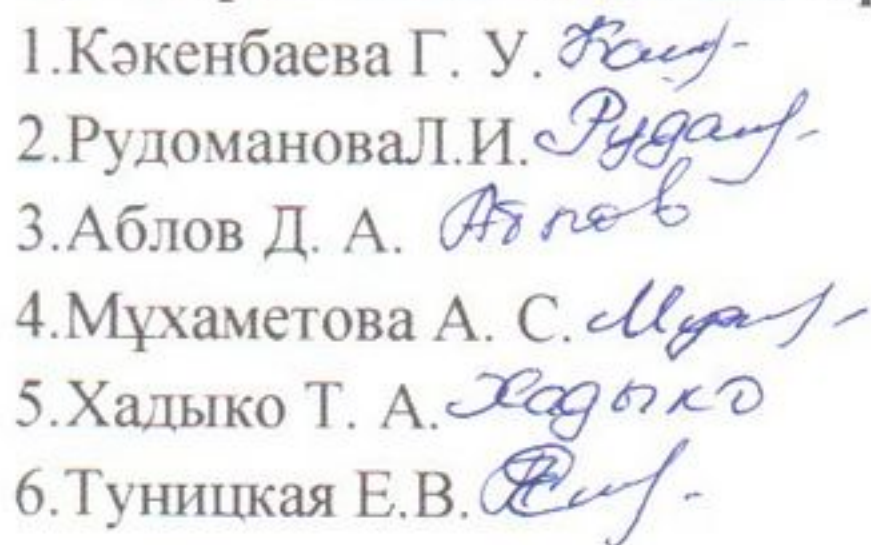 1.Кәкенбаева Г. У.
2.РудомановаЛ.И.
3.Аблов Д. А. Аблов
4.Мұхаметова А. С.
5.Хадыко Т. А. Хадыко
6.Туницкая Е.В.